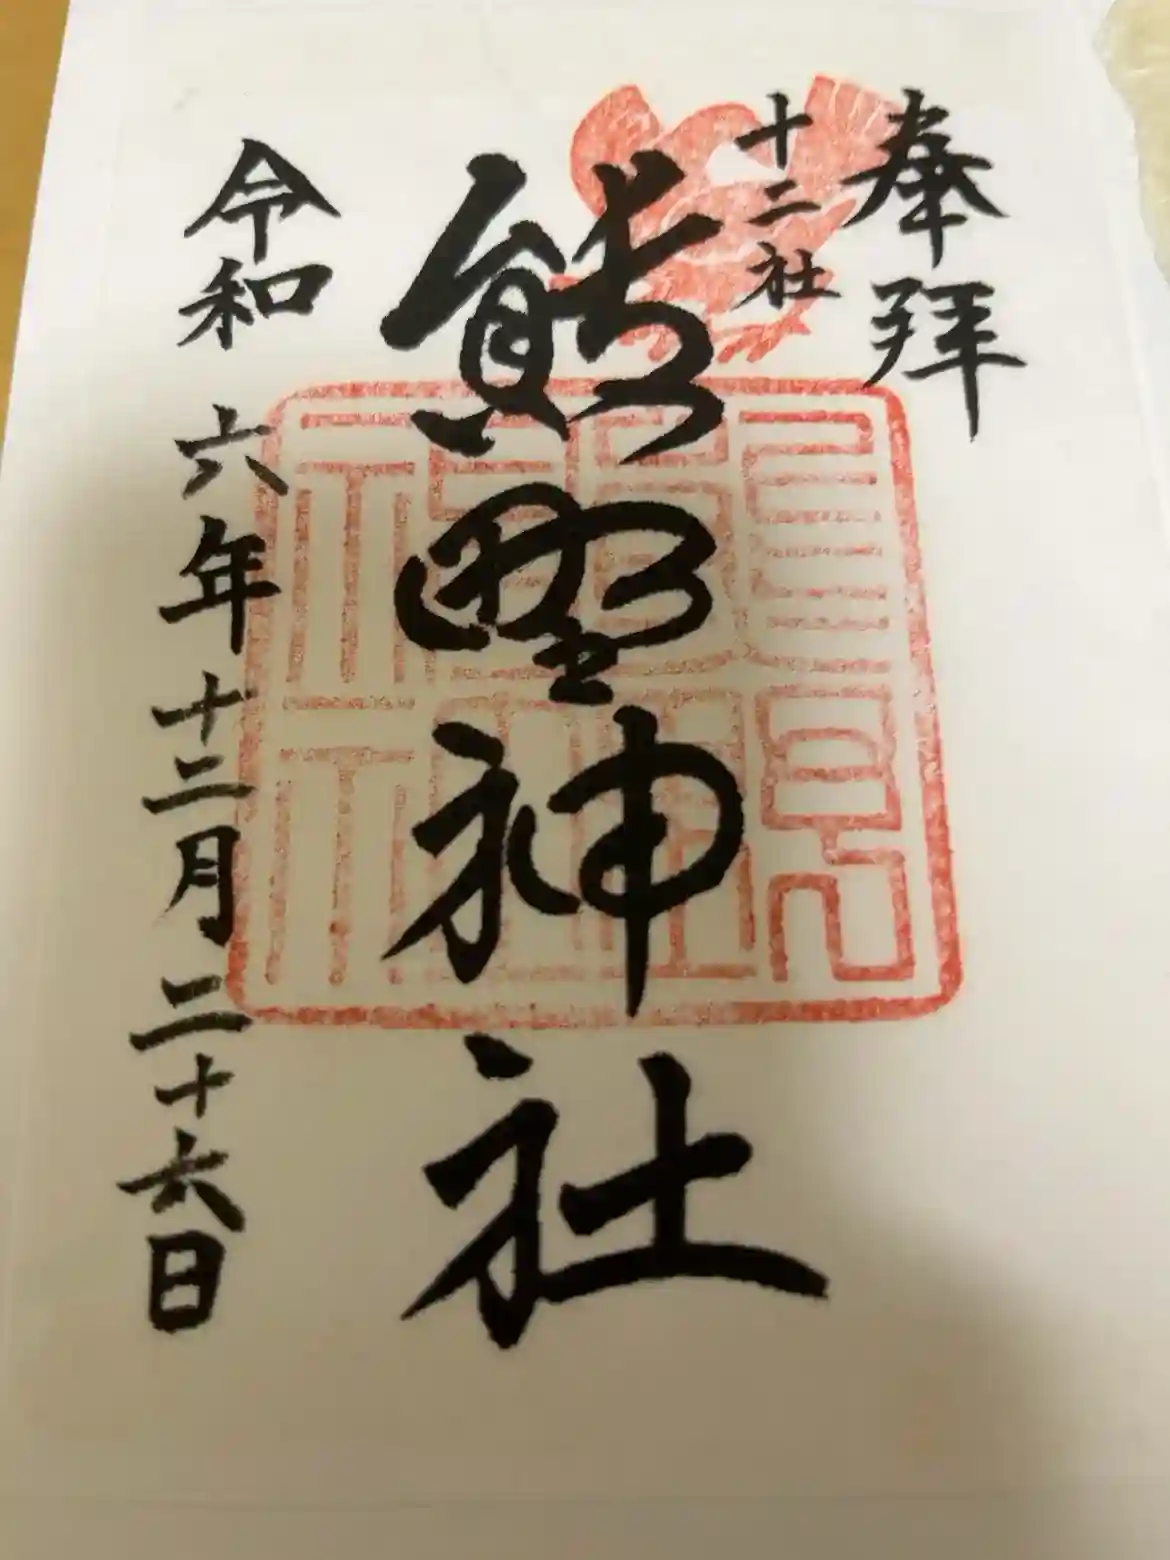 奉拝
十二社
熊野神社
令和六年十二月二十六日